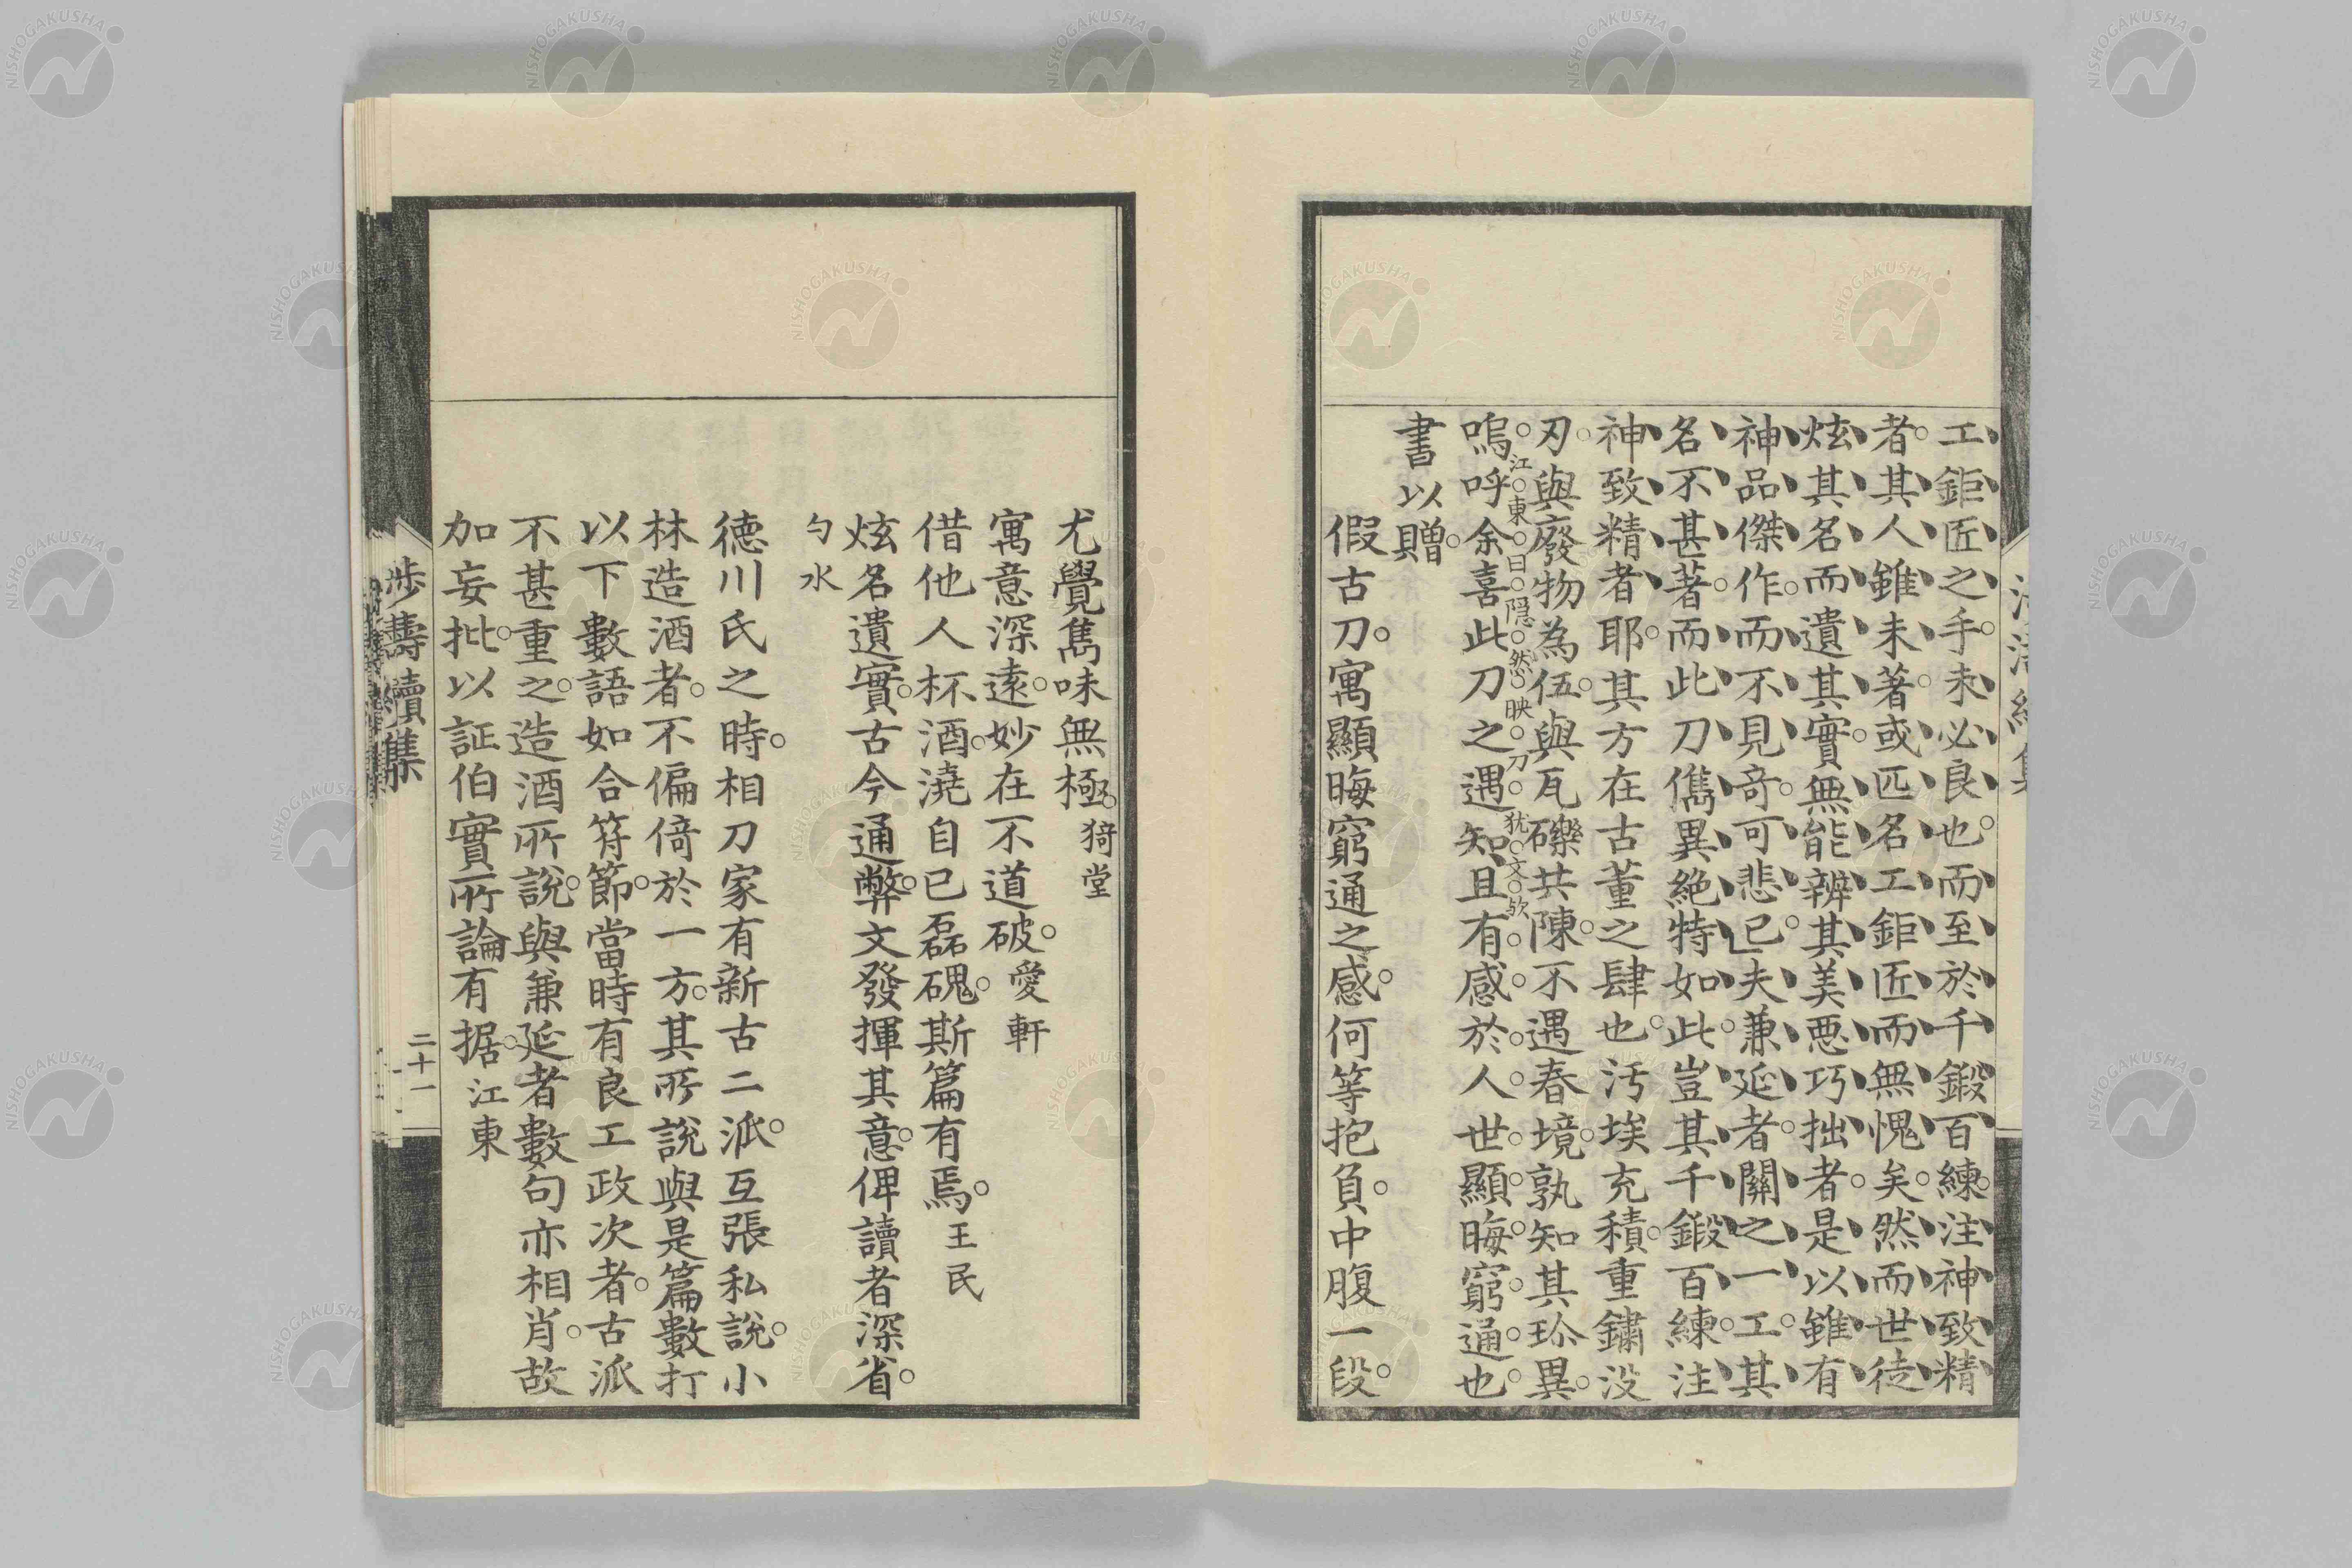 工鉅匠之手。未必良也。而至於千鍛百練。注神致精
者。其人雖未著。或匹名工鉅匠而無愧矣。然而世徒
炫其名而遺其實。無能辨其美惡巧拙者。是以雖有
神品傑作。而不見奇。可悲已」夫兼延者。關之一工。其
名不甚著。而此刀儁異絶特如此。豈其千鍛百練。注
神致精者耶。其方在古董之肆也。汚埃充積。重鏽没
刃。與廢物為伍。與瓦礫共陳。不遇春境。孰知其珍異。
江東曰隱然映刀猶文欤
嗚呼余喜此刀之遇知。且有感於人世顯晦窮通也
書以贈。
假古刀。寓顯晦窮通之感。何等抱負。中腹一段。
尤覺雋味無極。猗堂
寓意深遠。妙在不道破。愛軒
借他人杯酒。澆自己磊磈。斯篇有焉。王民
炫名遺實。古今通弊。文發揮其意。俾讀者深省。
勺水
德川氏之時。相刀家有新古二派。互張私說。小
林造酒者。不偏倚於一方。其所說與是篇數打
以下數語如合符節。當時有良工政次者。古派
不甚重之。造酒所說。與兼延者數句亦相肖。故
加妄批。以証伯實所論有据。江東
涉壽續集
二十一
NISHOGAKUSHA